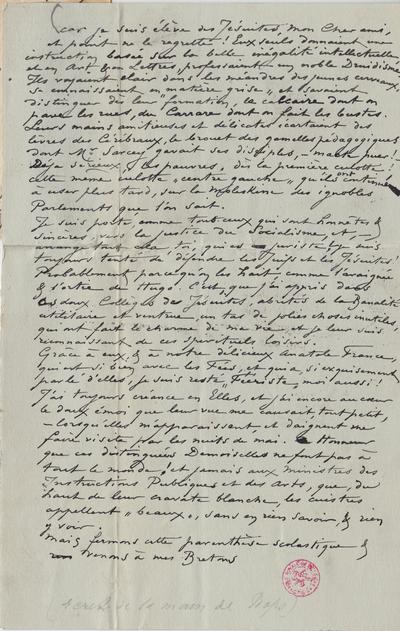 (car je suis élève des Jésuites, mon cher ami,
et point ne le regrette ! Eux seuls donnaient une
instruction basée sur la belle inégalité intellectuelle
et en Art & en Lettres, professaient un noble Druidisme
Ils voyaient clair dans les méandres des jeunes cerveaux,
se connaissaient en matière grise, et savaient
distinguer dès leur formation, le calcaire dont on
pave les rues, du Carrare dont on fait les bustes.
Leurs mains onctueuses et délicates écartaient des
lèvres des Cérébraux, le brouet des gamelles pédagogiques
dont Mr Sarcey gavait ses disciples,
Déjà sérieux, les pauvres, dès la première culotte !
cette même culotte "centre gauche" qu'ils ont continué
à user plus tard, sur la Moleskine des ignobles
Parlements que l'on sait.
Je suis poète, comme tous ceux qui sont honnêtes &
sincères, pour la justice du Socialisme, et
arrange tout cela toi, qui es juriste, j'y suis
toujours tenté de défendre les Juifs et les Jésuites !
Probablement parcequ'on les hait, comme l'araignée
& l'ortie de Hugo. C'est que j'ai appris dans
ces doux Collèges de Jésuites, abrités de la banalité
utilitaire et ventrue, un tas de jolies choses inutiles,
qui ont fait le charme de ma vie et je leur suis
reconnaissant de ces spirituels loisirs.
Grâce à eux, & à notre délicieux Anatole France,
qui est si bien avec les Fées, et qui a si exquisement
parlé d'elles, je suis resté "Féeriste" moi aussi !
J'ai toujours créance en Elles, et j'ai encore au cœur
le doux émoi que leur vue me causait, tout petit,
– lorsqu'elles m'apparaissent, et daignent me
faire visite par les nuits de mai. Honneur
que ces distinguées Demoiselles ne font pas à
tout le monde, et jamais aux ministres des
Instructions Publiques et des Arts, que, du
haut de leur cravate blanche, les cuistres
appellent "beaux", sans en rien savoir, & rien
y voir.
Mais fermons cette parenthèse scolastique &
venons à mes Bretons
(écrit de la main de Rops)